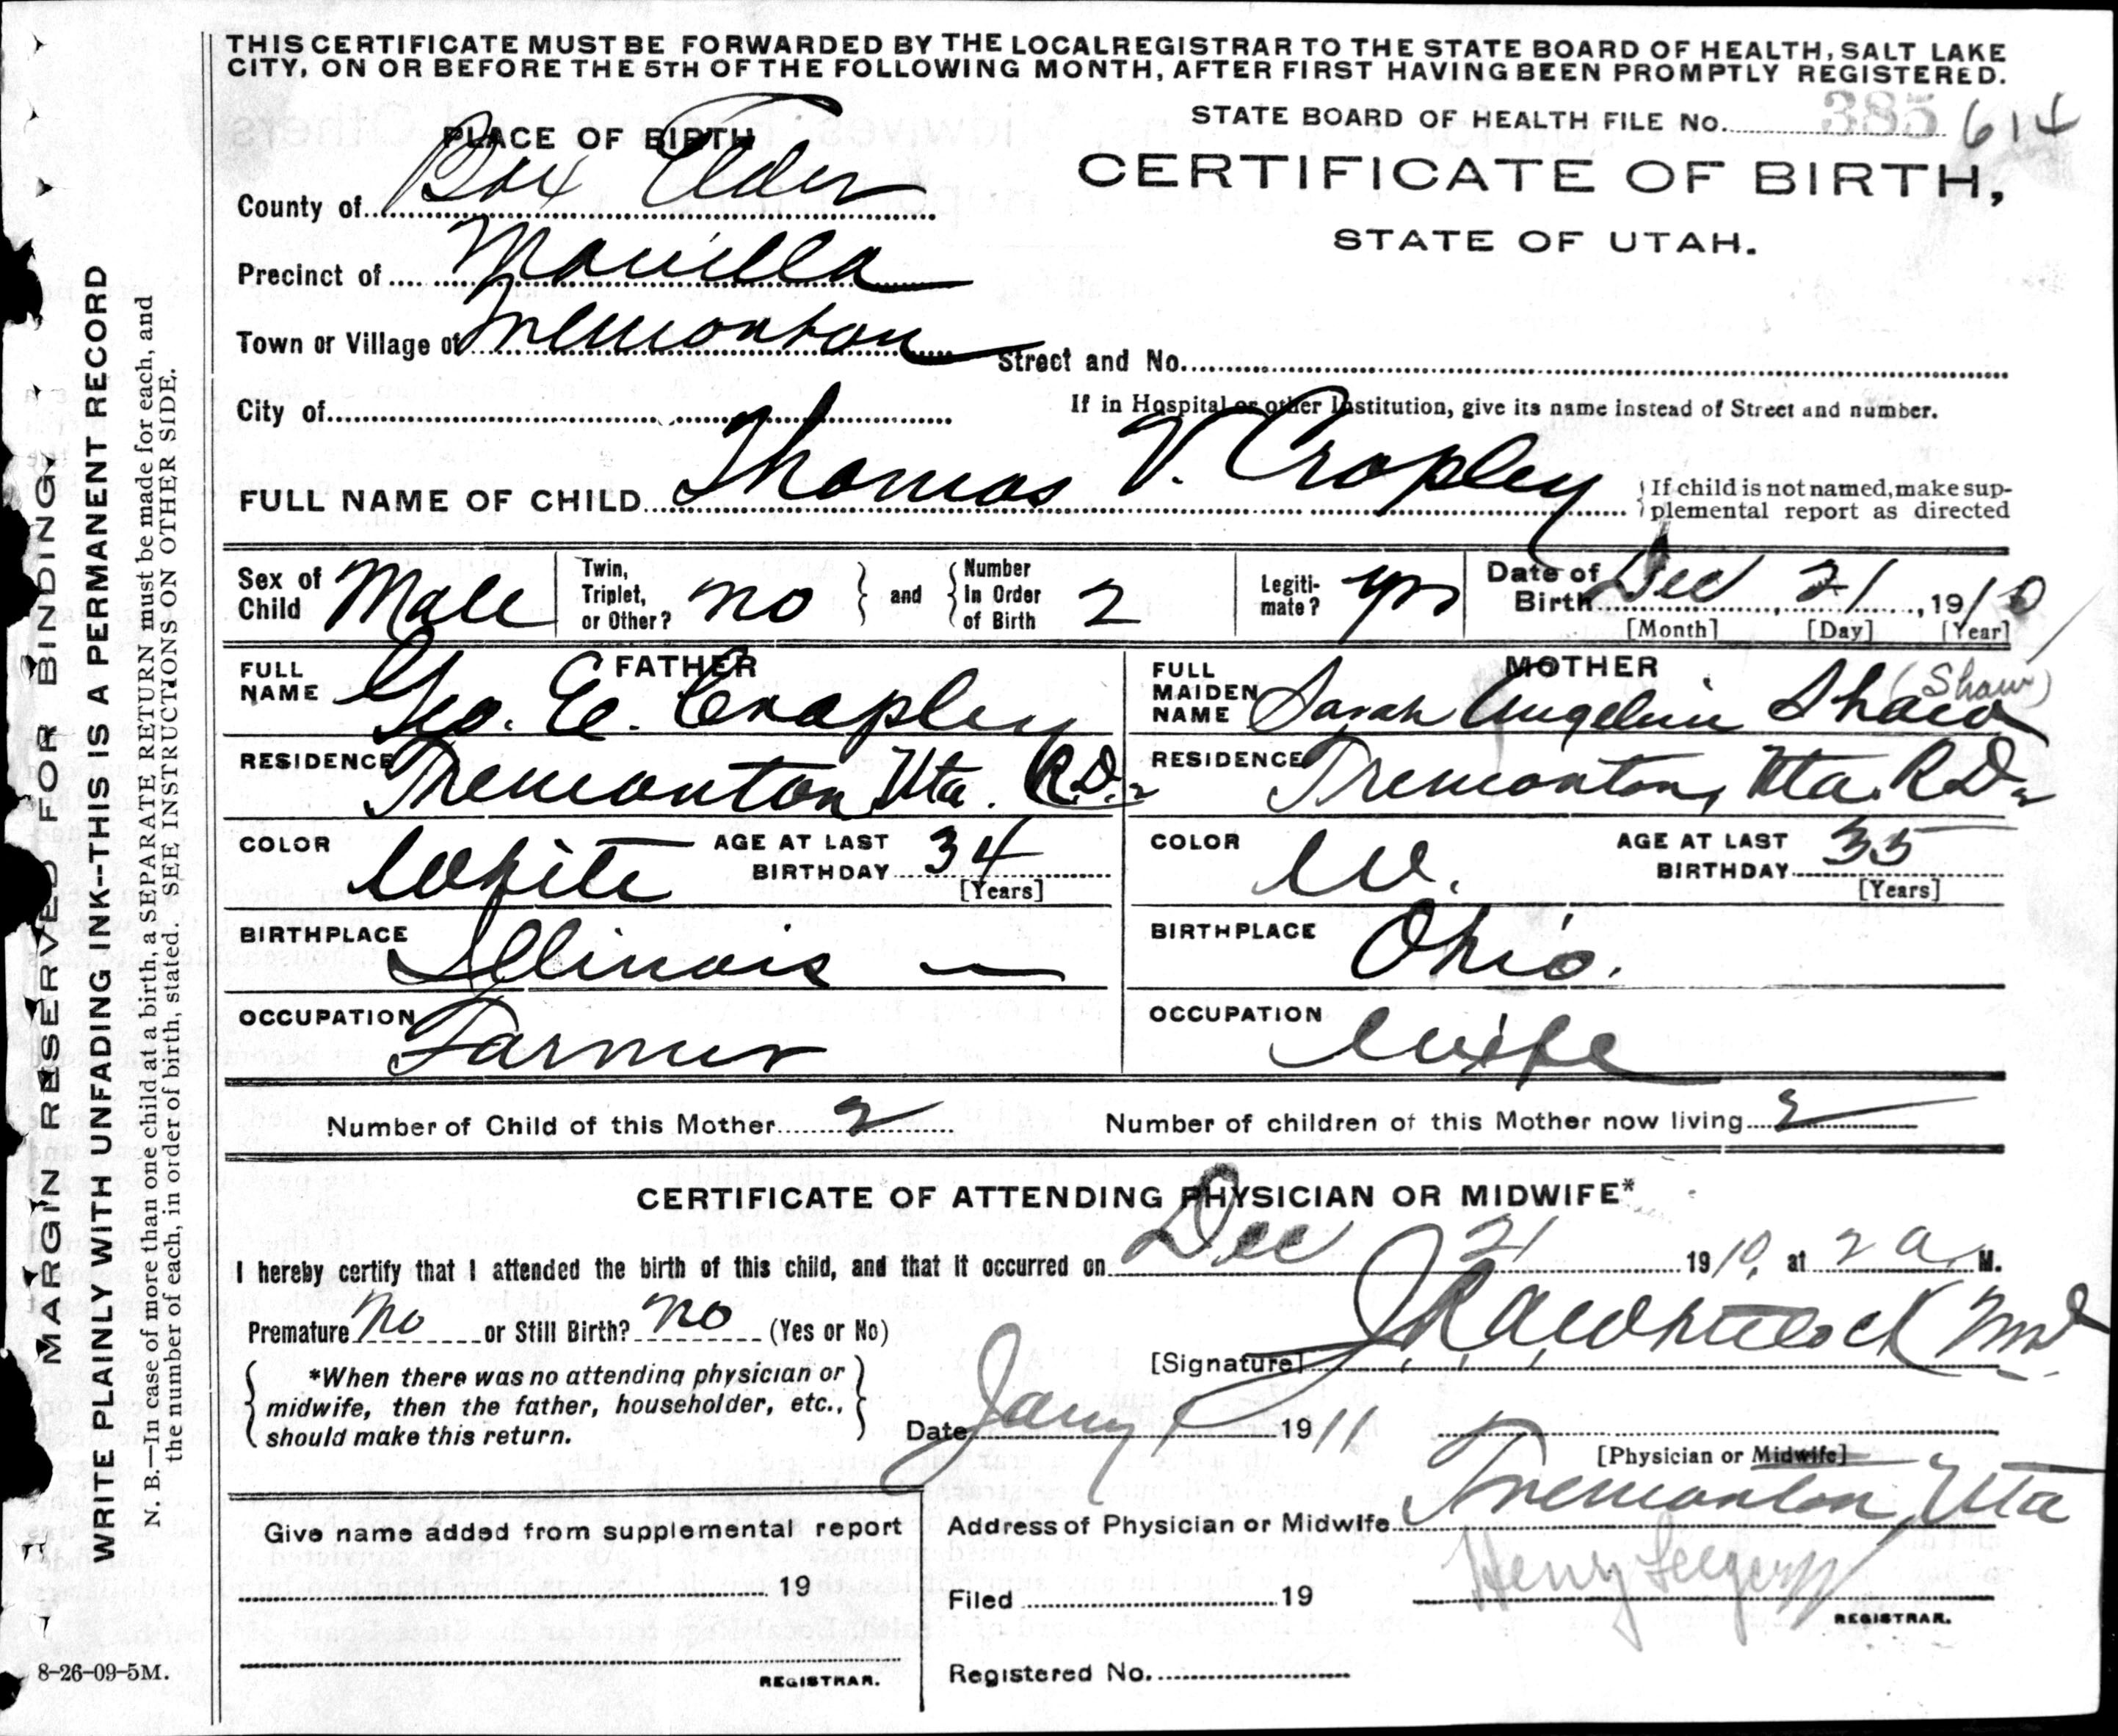 THIS CERTIFICATE MUST BE FORWARDED BY THE LOCAL REGISTRAR TO THE STATE BOARD OF HEALTH, SALT LAKE
CITY, ON OR BEFORE THE 5TH OF THE FOLLOWING MONTH, AFTER FIRST HAVING BEEN PROMPTLY REGISTERED.
STATE BOARD OF HEALTH FILE No. 385 614
PLACE OF BIRTH
CERTIFICATE OF BIRTH,
STATE OF UTAH.
County of Box Elder
Precinct of Manilla
Town or Village of Tremonton
Street and No.
City of
If in Hospital or other Institution, give its name instead of Street and number.
FULL NAME OF CHILD Thomas V. Cropley
If child is not named, make sup-
plemental report as directed
Sex of Child Male
Twin, Triplet, or Other? no
and
Number In Order of Birth 2
Legiti-mate? yes
Date of Birth Dec 21, 1910
[Month] [Day] [Year]
FATHER
FULL NAME Geo. E. Cropley
RESIDENCE Tremonton Uta. R.D.2
COLOR White
AGE AT LAST BIRTHDAY 34
[Years]
BIRTHPLACE Illinois
OCCUPATION Farmer
MOTHER
FULL MAIDEN NAME Sarah Angeline Shaw (Shaw)
RESIDENCE Tremonton, Uta. R.D.2
COLOR W.
AGE AT LAST BIRTHDAY 35
[Years]
BIRTHPLACE Ohio.
OCCUPATION Wife
Number of Child of this Mother 2
Number of children of this Mother now living 2
CERTIFICATE OF ATTENDING PHYSICIAN OR MIDWIFE*
I hereby certify that I attended the birth of this child, and that it occurred on Dec 21 1910, at 2 a. M.
Premature No or Still Birth? no (Yes or No)
[Signature] J.R.A. Whitlock Md.
*When there was no attending physician or
midwife, then the father, householder, etc.,
should make this return.
Date Jany 1 1911
[Physician or Midwife]
Address of Physician or Midwife Tremonton Uta
Give name added from supplemental report
19
REGISTRAR.
Filed 19
Henry
REGISTRAR.
Registered No.
MARGIN RESERVED FOR BINDING.
WRITE PLAINLY WITH UNFADING INK--THIS IS A PERMANENT RECORD
N. B.—In case of more than one child at a birth, a SEPARATE RETURN must be made for each, and
the number of each, in order of birth, stated. SEE INSTRUCTIONS ON OTHER SIDE.
8-26-09-5M.